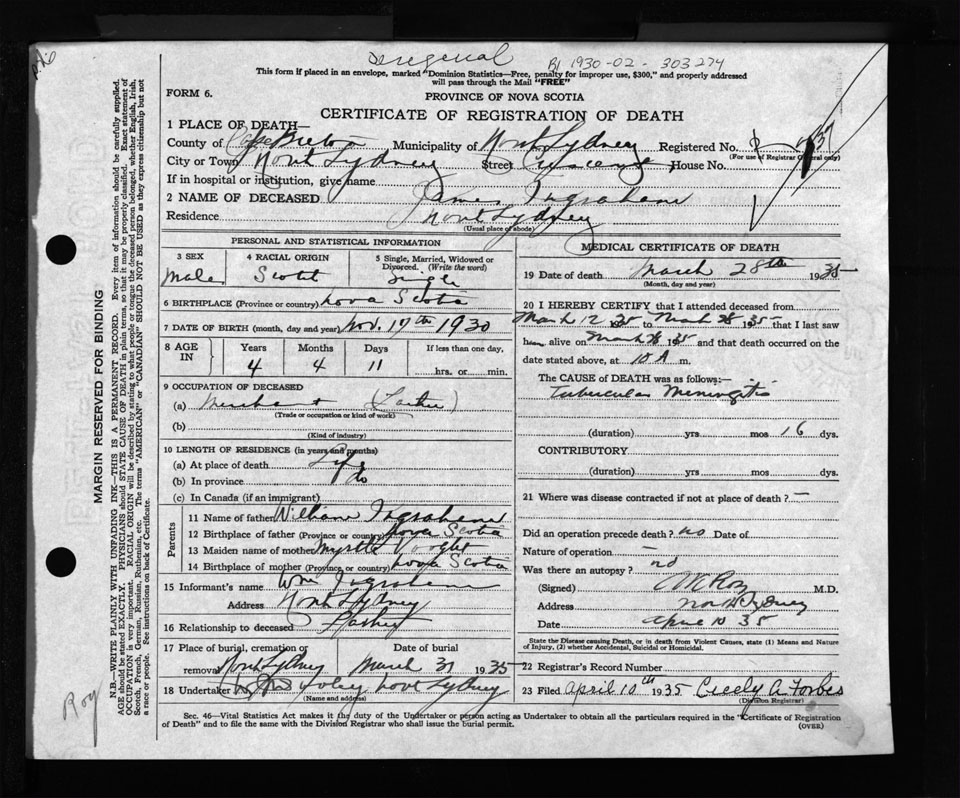 B1 1930-02-303274
This form if placed in an envelope, marked "Dominion Statistics—Free, penalty for improper use, $300," and properly addressed
will pass through the Mail "FREE"
FORM 6.
PROVINCE OF NOVA SCOTIA
CERTIFICATE OF REGISTRATION OF DEATH
1 PLACE OF DEATH—
County of Cape Breton Municipality of North Sydney Registered No.
(For use of Registrar General only)
City or Town North Sydney Street House No.
If in hospital or institution, give name
2 NAME OF DECEASED James Ingraham
Residence North Sydney
(Usual place of abode)
PERSONAL AND STATISTICAL INFORMATION
3 SEX
Male
4 RACIAL ORIGIN
Scotch
5 Single, Married, Widowed or
Divorced. (Write the word)
Single
6 BIRTHPLACE (Province or country) Nova Scotia
7 DATE OF BIRTH (month, day and year) Nov. 17th 1930
8 AGE IN
Years Months Days If less than one day,
4 4 11 hrs. or min.
9 OCCUPATION OF DECEASED
(a) Merchant (Father)
(Trade or occupation or kind of work)
(b)
(Kind of industry)
10 LENGTH OF RESIDENCE (in years and months)
(a) At place of death Life
(b) In province do
(c) In Canada (if an immigrant)
Parents
11 Name of father William Ingraham
12 Birthplace of father (Province or country) Nova Scotia
13 Maiden name of mother Myrtle
14 Birthplace of mother (Province or country) Nova Scotia
15 Informant's name Wm Ingraham
Address North Sydney
16 Relationship to deceased Father
17 Place of burial, cremation or
removal North Sydney
Date of burial
March 31 1935
18 Undertaker Sydney
(Name and address)
MEDICAL CERTIFICATE OF DEATH
19 Date of death March 28th 1935
(Month, day and year)
20 I HEREBY CERTIFY that I attended deceased from
March 12 1935 to March 28 1935 that I last saw
him alive on March 28 1935 and that death occurred on the
date stated above, at 10 A m.
The CAUSE of DEATH was as follows:—
Tubercular Meningitis
(duration) yrs mos 16 dys.
CONTRIBUTORY
(duration) yrs mos dys.
21 Where was disease contracted if not at place of death? —
Did an operation precede death? no Date of
Nature of operation —
Was there an autopsy? no
(Signed) M.D.
Address North Sydney
Date April 10 35
State the Disease causing Death, or in death from Violent Causes, state (1) Means and Nature
of Injury, (2) whether Accidental, Suicidal or Homicidal.
22 Registrar's Record Number
23 Filed April 10th 1935 Creely A. Forbes
(Division Registrar)
Sec. 46—Vital Statistics Act makes it the duty of the Undertaker or person acting as Undertaker to obtain all the particulars required in the "Certificate of Registration
of Death" and to file the same with the Division Registrar who shall issue the burial permit.
(OVER)
MARGIN RESERVED FOR BINDING
N.B.—WRITE PLAINLY WITH UNFADING INK—THIS IS A PERMANENT RECORD. Every item of information should be carefully supplied.
AGE should be stated EXACTLY. PHYSICIANS should STATE CAUSE OF DEATH in plain terms, so that it may be properly classified. Exact statement of
OCCUPATION is very important. RACIAL ORIGIN will be described by stating to what people or tongue the deceased person belonged, whether English, Irish,
Scotch, French, German, Russian, Ruthenian, etc. The terms "AMERICAN" or "CANADIAN" SHOULD NOT BE USED as they express citizenship but not
a race or people. See instructions on back of Certificate.
Roy